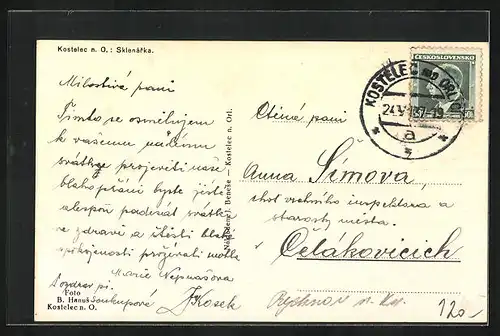 Kostelec n. O.: Sklenářka.
Milostivá paní
Tímto se osmělujem
k vašemu
svátku projeviti naše
blahopřání byste ještě
alespoň padesát svátků
ve zdraví a štěstí
spokojenosti prožívati mohla
Marie
Pozdrav
Soukupová
J Kosek
Foto
B. Hanuš
Kostelec n. O.
Nakladatel Beneše — Kostelec n. Orl.
ČESKOSLOVENSKO
KOSTELEC NAD ORL.
24.V.37-19
a
Ctěná paní
Anna Šímova,
chot vrchního inspektora a
starosty města.
Čelákovicích
Rychnov n. Kn.
120-